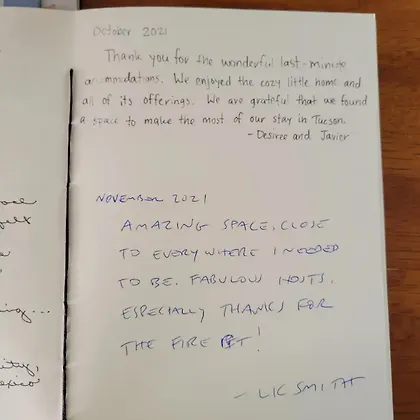 October 2021
Thank you for the wonderful last-minute
accommodations. We enjoyed the cozy little home and
all of its offerings. We are grateful that we found
a space to make the most of our stay in Tucson.
- Desiree and Javier
NOVEMBER 2021
AMAZING SPACE, CLOSE
TO EVERYWHERE I NEEDED
TO BE. FABULOUS HOSTS.
ESPECIALLY THANKS FOR
THE FIRE PIT!
- SMITH